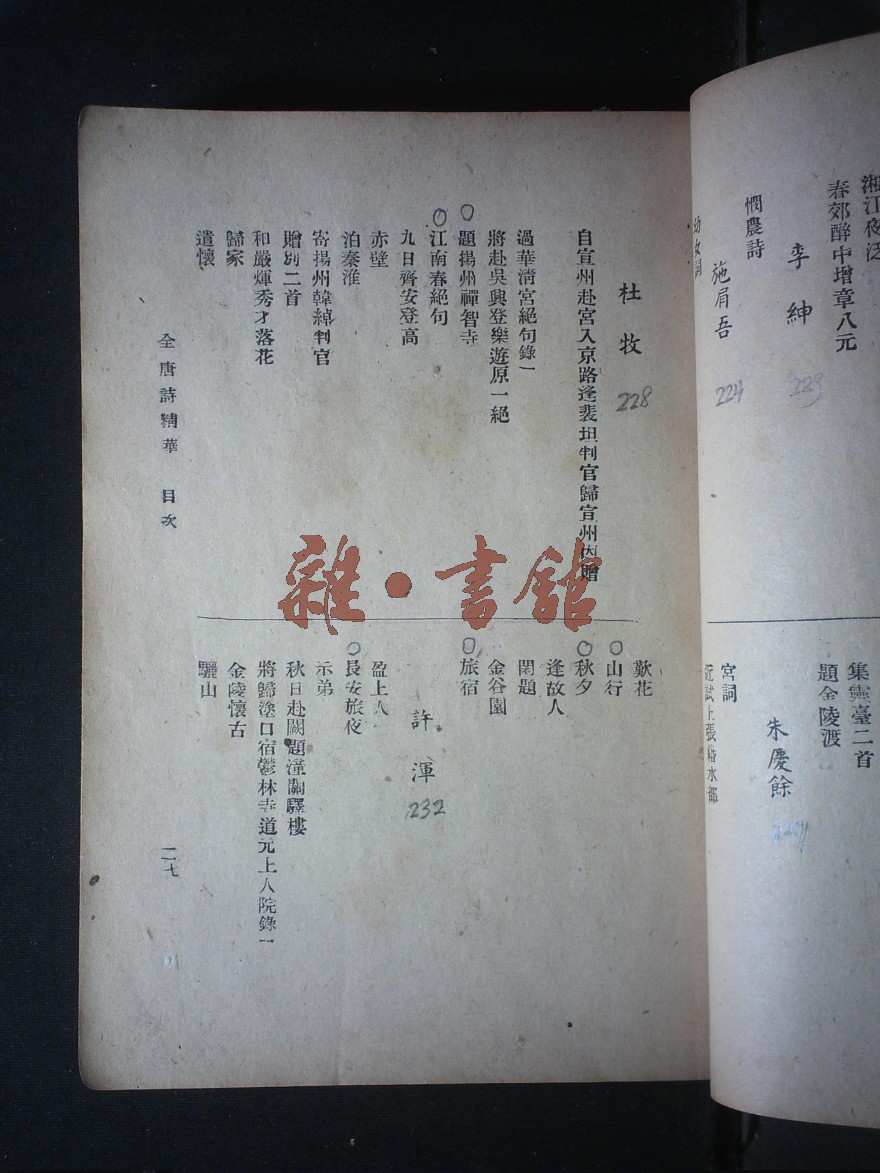 湘江夜泛
春郊醉中增章八元
李紳
223
憫農詩
施肩吾
224
幼女詞
集靈臺二首
題金陵渡
朱慶餘
宮詞
近試上張籍水部
杜牧
228
自宣州赴宮入京路逢裴坦判官歸宣州因贈
過華清宮絕句錄一
將赴吳興登樂遊原一絕
題揚州禪智寺
江南春絕句
九日齊安登高
赤壁
泊秦淮
寄揚州韓綽判官
贈別二首
和嚴惲秀才落花
歸家
遣懷
歎花
山行
秋夕
逢故人
閑題
金谷園
旅宿
許渾
232
盈上人
長安旅夜
示弟
秋日赴闕題潼關驛樓
將歸塗口宿鬱林寺道元上人院錄一
金陵懷古
驪山
全唐詩精華 目次
二七
雜·書舘